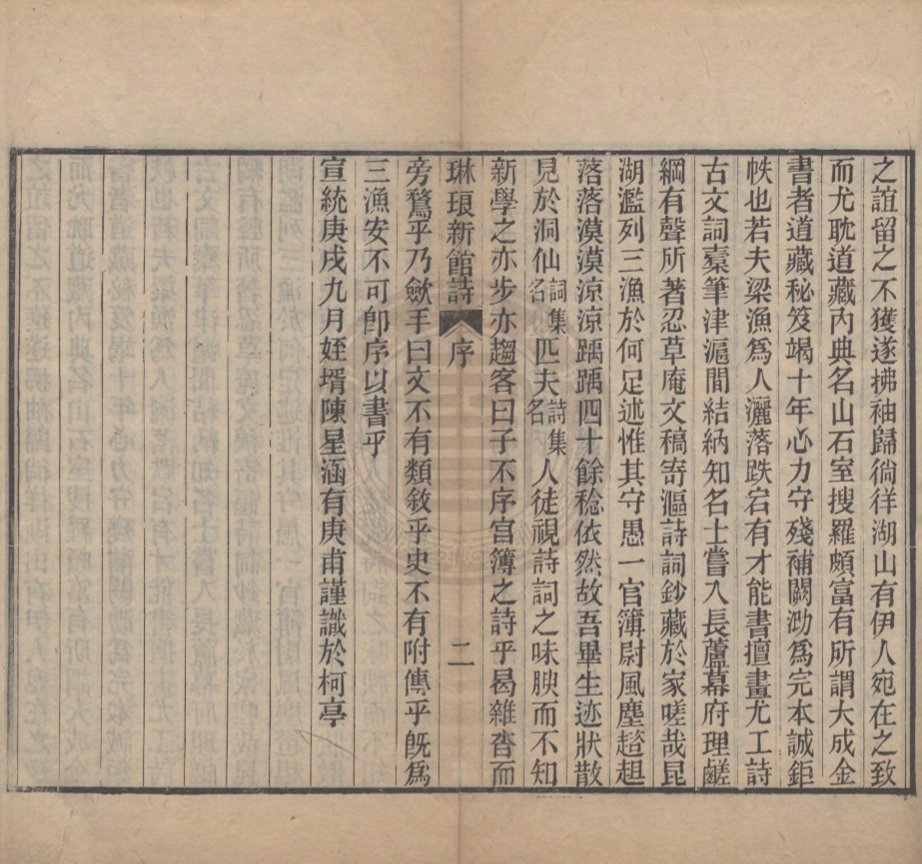 之誼留之不獲遂拂袖歸徜徉湖山有伊人宛在之致
而尤耽道藏內典名山石室搜羅頗富有所謂大成金
書者道藏秘笈竭十年心力守殘補闕泐為完本誠鉅
帙也若夫梁漁為人灑落跌宕有才能書擅畫尤工詩
古文詞橐筆津滬間結納知名士嘗入長蘆幕府理鹺
綱有聲所著忍草庵文稿寄漚詩詞鈔藏於家嗟哉昆
湖濫列三漁於何足述惟其守愚一官簿尉風塵趦趄
落落漠漠涼涼踽踽四十餘稔依然故吾畢生迹狀散
見於洞仙詞集名匹夫詩集名人徒視詩詞之味腴而不知
新學之亦步亦趨客曰子不序官簿之詩乎曷雜沓而
琳琅新館詩 序 二
旁騖乎乃歛手曰文不有類敘乎史不有附傳乎旣為
三漁安不可卽序以書乎
宣統庚戌九月姪壻陳星涵有庚甫謹識於柯亭